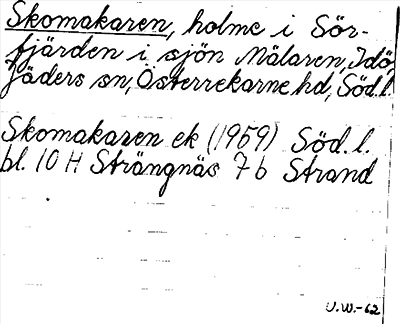 Skomakaren, holme i Sör-
fjärden i sjön Mälaren, Idö,
Jäders sn, Österrekarne hd, Söd.l.
Skomakaren ek (1959) Söd. l.
bl. 10 H Strängnäs 7 b Strand
U.W.-62